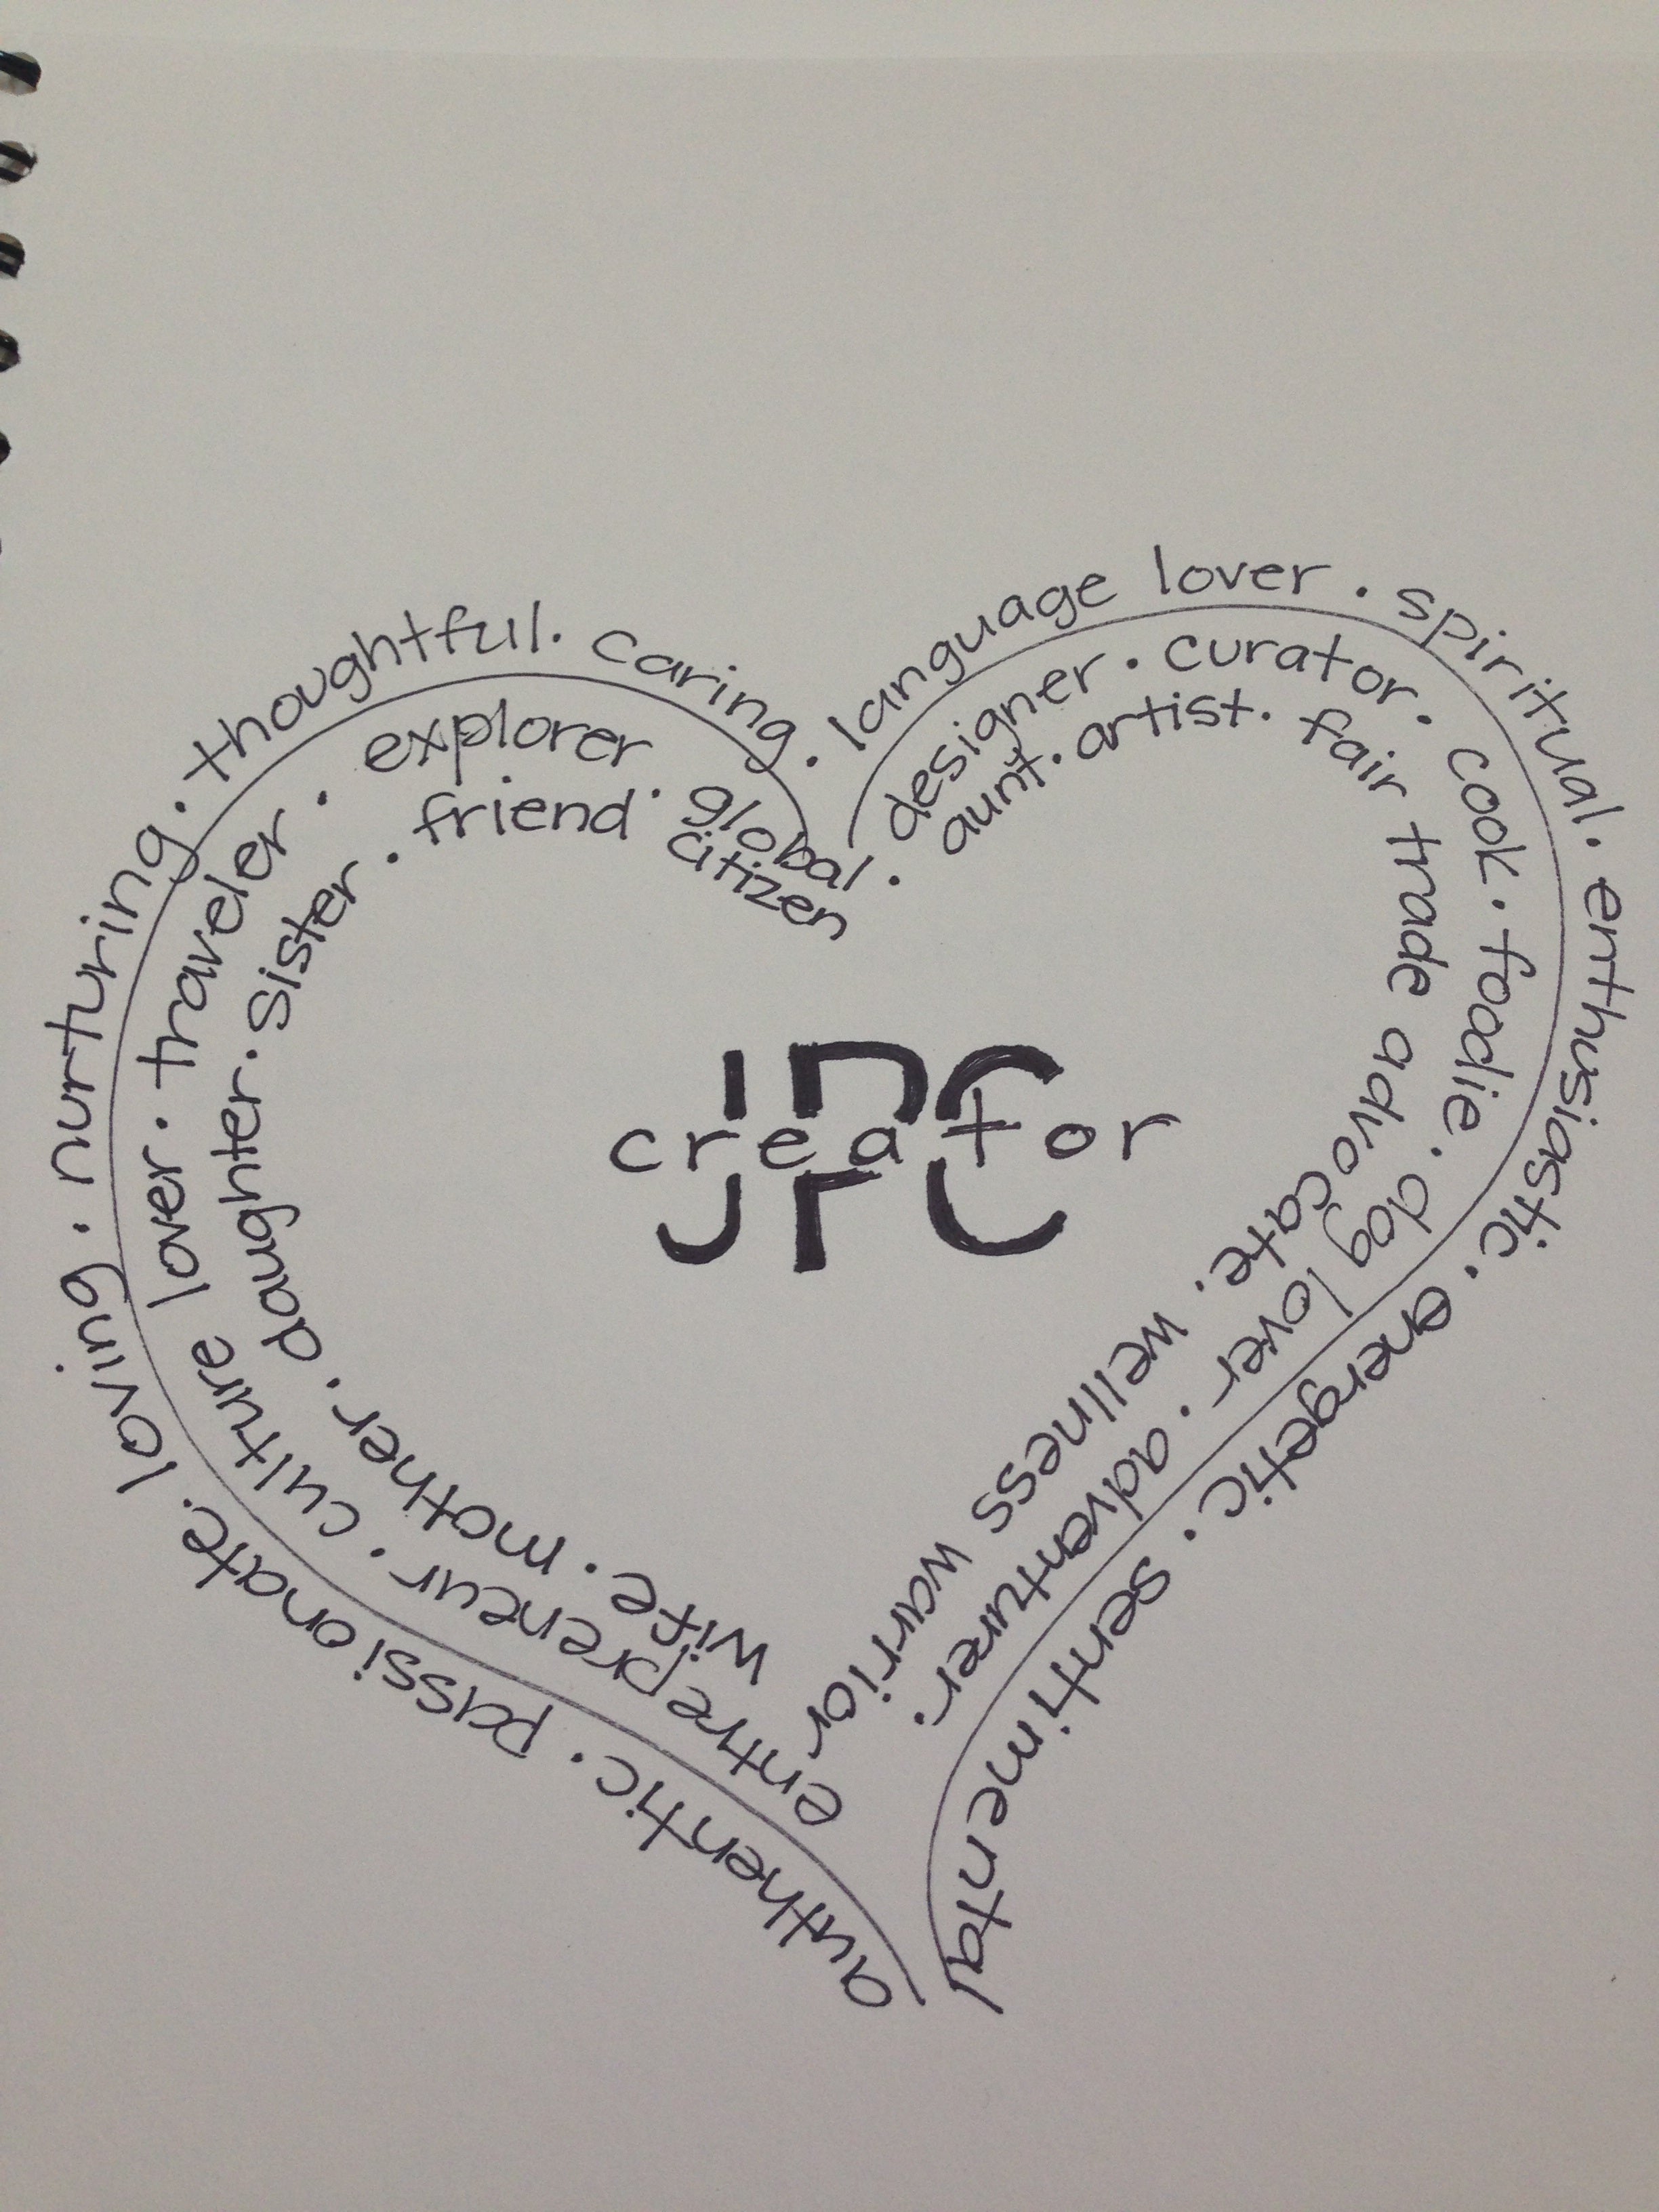 authentic. passionate. loving. nurturing. thoughtful. caring. language lover. spiritual. enthusiastic. energetic. sentimental
entrepreneur. culture lover. traveler. explorer. global citizen. designer. curator. cook. foodie. dog lover. adventurer.
wife. mother. daughter. sister. friend. aunt. artist. fair trade advocate. wellness warrior
creator